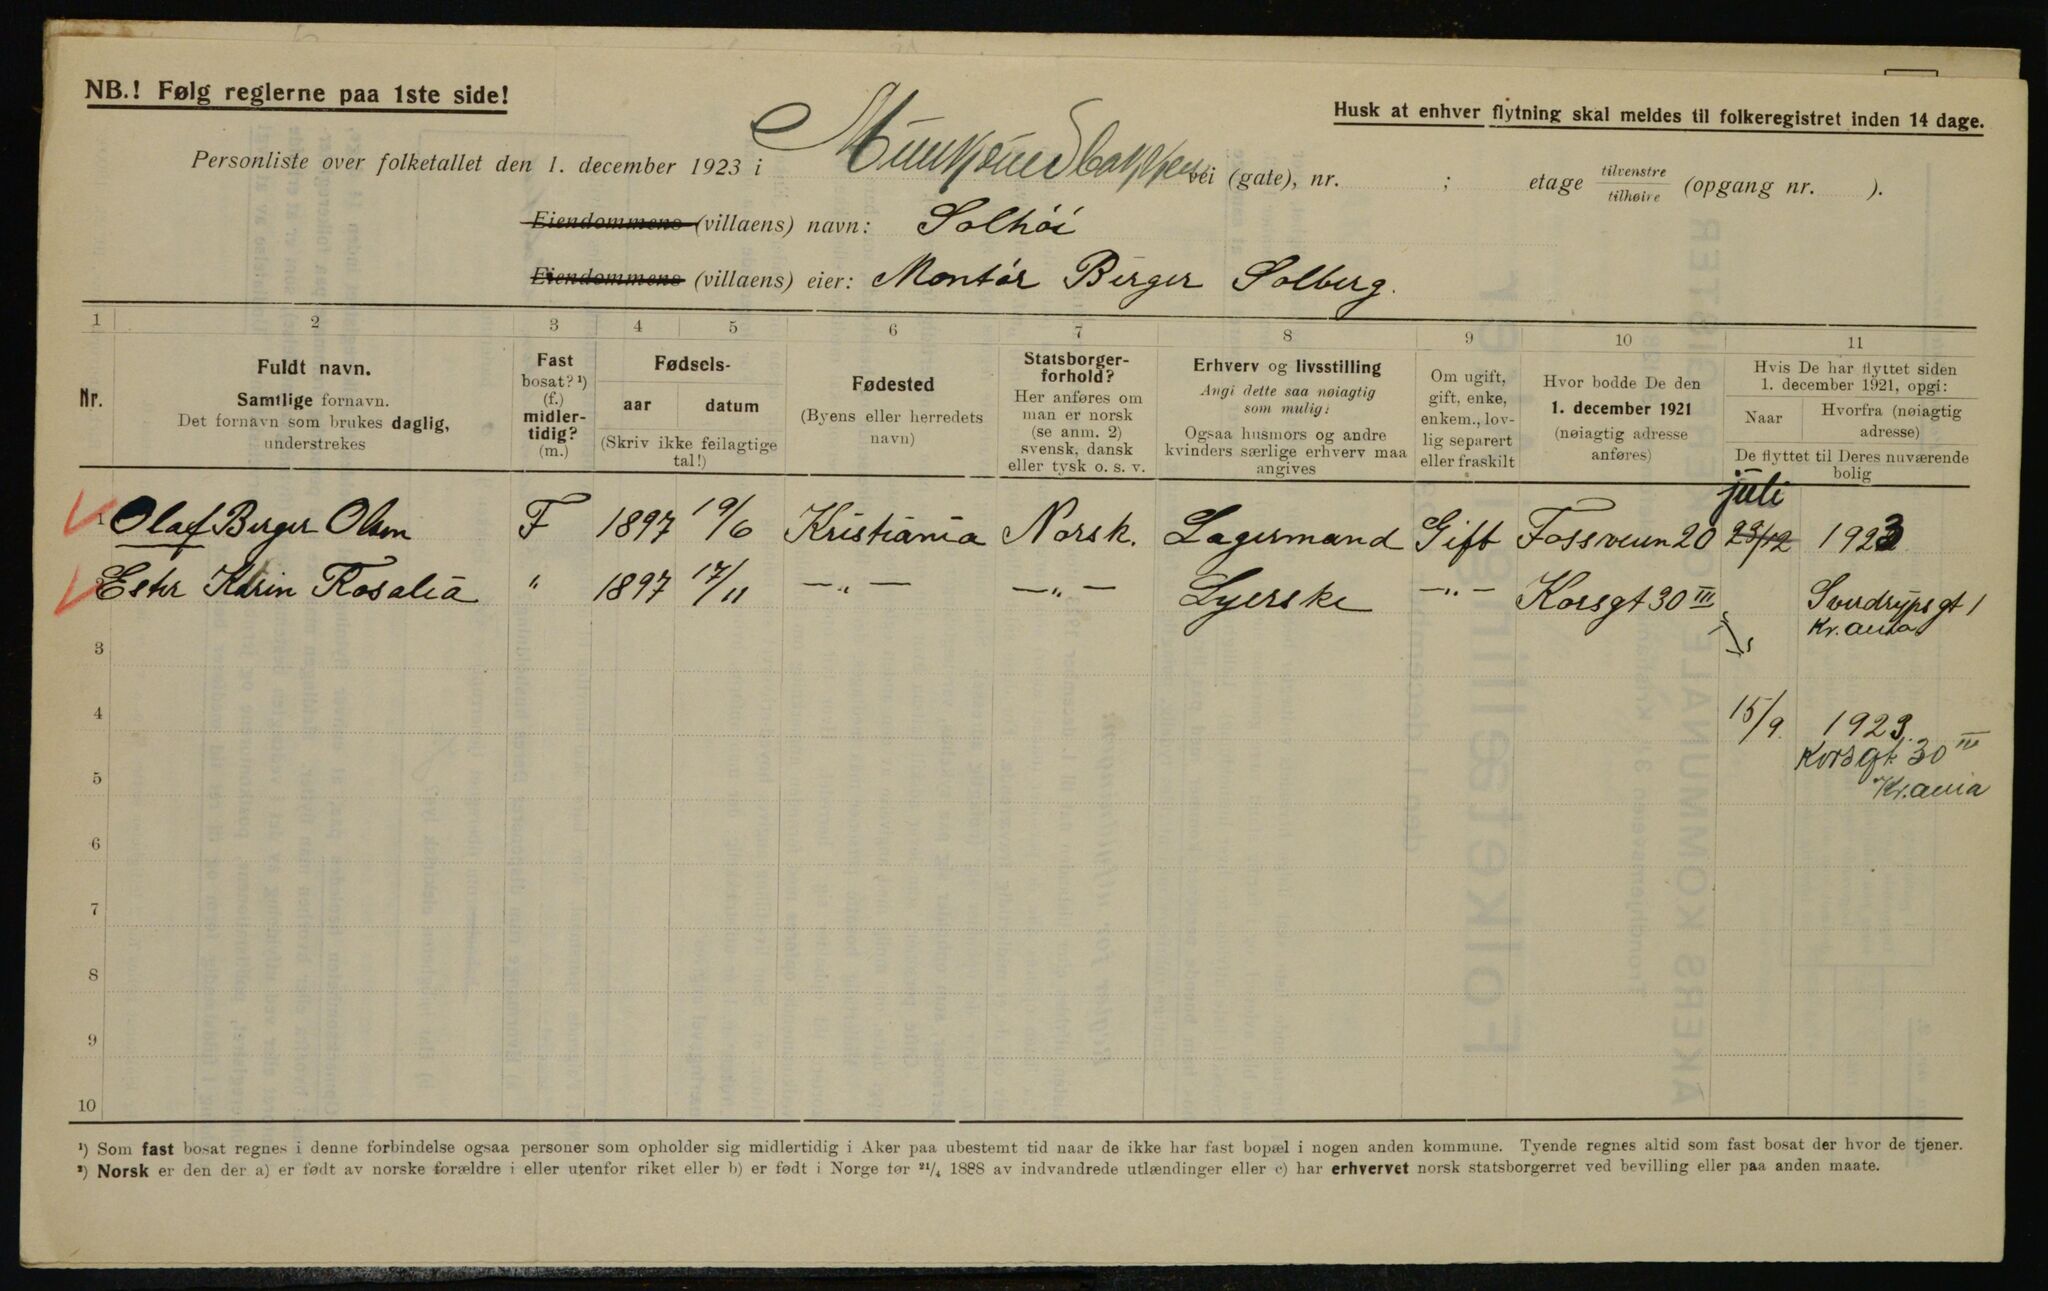 NB.! Følg reglerne paa 1ste side!
Husk at enhver flytning skal meldes til folkeregistret inden 14 dage.
Personliste over folketallet den 1. december 1923 i vei (gate), nr. ; etage tilvenstre tilhøire (opgang nr. ).
Eiendommens (villaens) navn: Solhöi
Eiendommens (villaens) eier: Montør Berger Solberg.
1 2 3 4 5 6 7 8 9 10 11
Nr.
Fuldt navn.
Samtlige fornavn.
Det fornavn som brukes daglig, understrekes
Fast bosat? ¹) (f.) midler-tidig? (m.)
Fødsels-
aar datum
(Skriv ikke feilagtige tal!)
Fødested
(Byens eller herredets navn)
Statsborger-forhold?
Her anføres om man er norsk (se anm. 2) svensk, dansk eller tysk o. s. v.
Erhverv og livsstilling
Angi dette saa nøiagtig som mulig:
Ogsaa husmors og andre kvinders særlige erhverv maa angives
Om ugift, gift, enke, enkem., lov-lig separert eller fraskilt
Hvor bodde De den
1. december 1921
(nøiagtig adresse anføres)
Hvis De har flyttet siden 1. december 1921, opgi:
Naar
Hvorfra (nøiagtig adresse)
De flyttet til Deres nuværende bolig
juli
1 Olaf Berger Olsen F 1897 19/6 Kristiania Norsk. Lagermand Gift Fossveien 20 23/12 1923
Ester Karin Rosalia " 1897 17/11 —"— —"— Syerske —"— Korsgt 30 III Sverdrupsgt 1
Kr.ania
3
4 15/9. 1923.
Korsgt. 30 III
5
Kr.ania
6
7
8
9
10
¹) Som fast bosat regnes i denne forbindelse ogsaa personer som opholder sig midlertidig i Aker paa ubestemt tid naar de ikke har fast bopæl i nogen anden kommune. Tyende regnes altid som fast bosat der hvor de tjener.
²) Norsk er den der a) er født av norske forældre i eller utenfor riket eller b) er født i Norge før 21/4 1888 av indvandrede utlændinger eller c) har erhvervet norsk statsborgerret ved bevilling eller paa anden maate.